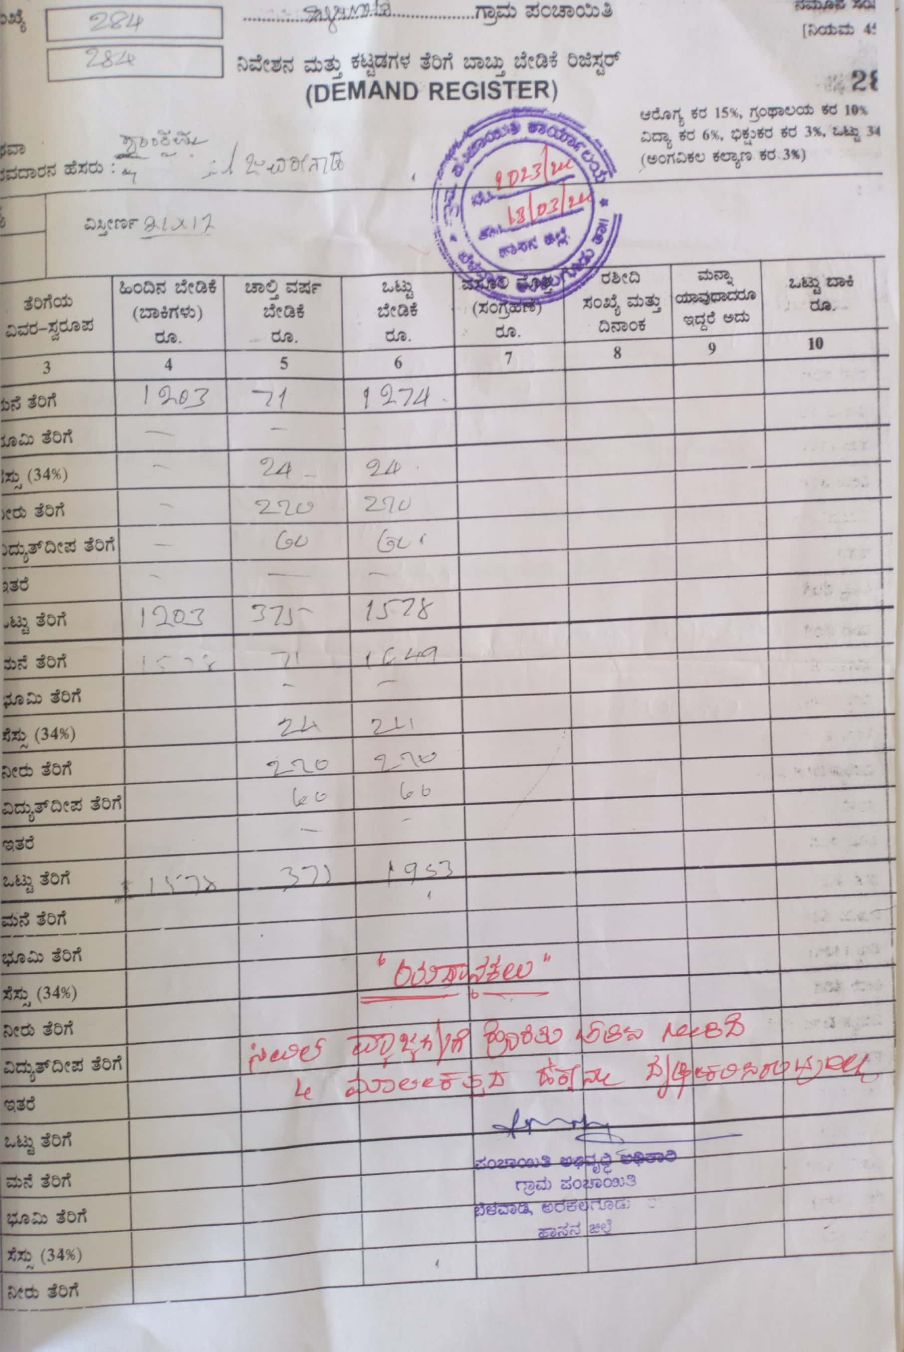 284
ಗ್ರಾಮ ಪಂಚಾಯಿತಿ
284
ನಿವೇಶನ ಮತ್ತು ಕಟ್ಟಡಗಳ ತೆರಿಗೆ ಬಾಬ್ತು ಬೇಡಿಕೆ ರಿಜಿಸ್ಟರ್
(DEMAND REGISTER)
[ನಿಯಮ
28
ಆರೋಗ್ಯ ಕರ 15%, ಗ್ರಂಥಾಲಯ ಕರ 10%
ವಿದ್ಯಾ ಕರ 6%, ಭಿಕ್ಷುಕರ ಕರ 3%, ಒಟ್ಟು 34
(ಅಂಗವಿಕಲ ಕಲ್ಯಾಣ ಕರ 3%)
ಹೆಸರು :
2023/24
18/03/24
ಹಾಸನ ಜಿಲ್ಲೆ
ವಿಸ್ತೀರ್ಣ 21x17
ತೆರಿಗೆಯ ವಿವರ–ಸ್ವರೂಪ ಹಿಂದಿನ ಬೇಡಿಕೆ (ಬಾಕಿಗಳು) ರೂ. ಚಾಲ್ತಿ ವರ್ಷ ಬೇಡಿಕೆ ರೂ. ಒಟ್ಟು ಬೇಡಿಕೆ ರೂ. (ಸಂಗ್ರಹಣೆ) ರೂ. ರಶೀದಿ ಸಂಖ್ಯೆ ಮತ್ತು ದಿನಾಂಕ ಮನ್ನಾ ಯಾವುದಾದರೂ ಇದ್ದರೆ ಅದು ಒಟ್ಟು ಬಾಕಿ ರೂ.
3 4 5 6 7 8 9 10
ಮನೆ ತೆರಿಗೆ 1203 71 1274
ಭೂಮಿ ತೆರಿಗೆ — –
ಸೆಸ್ಸು (34%) – 24 24
ನೀರು ತೆರಿಗೆ – 220 220
ವಿದ್ಯುತ್‌ದೀಪ ತೆರಿಗೆ — 60 60
ಇತರೆ – — –
ಒಟ್ಟು ತೆರಿಗೆ 1203 375 1578
ಮನೆ ತೆರಿಗೆ 1578 71 1649
ಭೂಮಿ ತೆರಿಗೆ – –
ಸೆಸ್ಸು (34%) 24 24
ನೀರು ತೆರಿಗೆ 220 220
ವಿದ್ಯುತ್‌ದೀಪ ತೆರಿಗೆ 60 60
ಇತರೆ – –
ಒಟ್ಟು ತೆರಿಗೆ 1578 375 1953
ಮನೆ ತೆರಿಗೆ
ಭೂಮಿ ತೆರಿಗೆ
ಸೆಸ್ಸು (34%)
ನೀರು ತೆರಿಗೆ
ವಿದ್ಯುತ್‌ದೀಪ ತೆರಿಗೆ
ಇತರೆ
ಒಟ್ಟು ತೆರಿಗೆ
ಪಂಚಾಯಿತಿ ಅಭಿವೃದ್ಧಿ ಅಧಿಕಾರಿ
ಮನೆ ತೆರಿಗೆ
ಗ್ರಾಮ ಪಂಚಾಯಿತಿ
ಭೂಮಿ ತೆರಿಗೆ
ಬೆಳವಾಡಿ, ಅರಕಲಗೂಡು
ಹಾಸನ ಜಿಲ್ಲೆ
ಸೆಸ್ಸು (34%)
ನೀರು ತೆರಿಗೆ